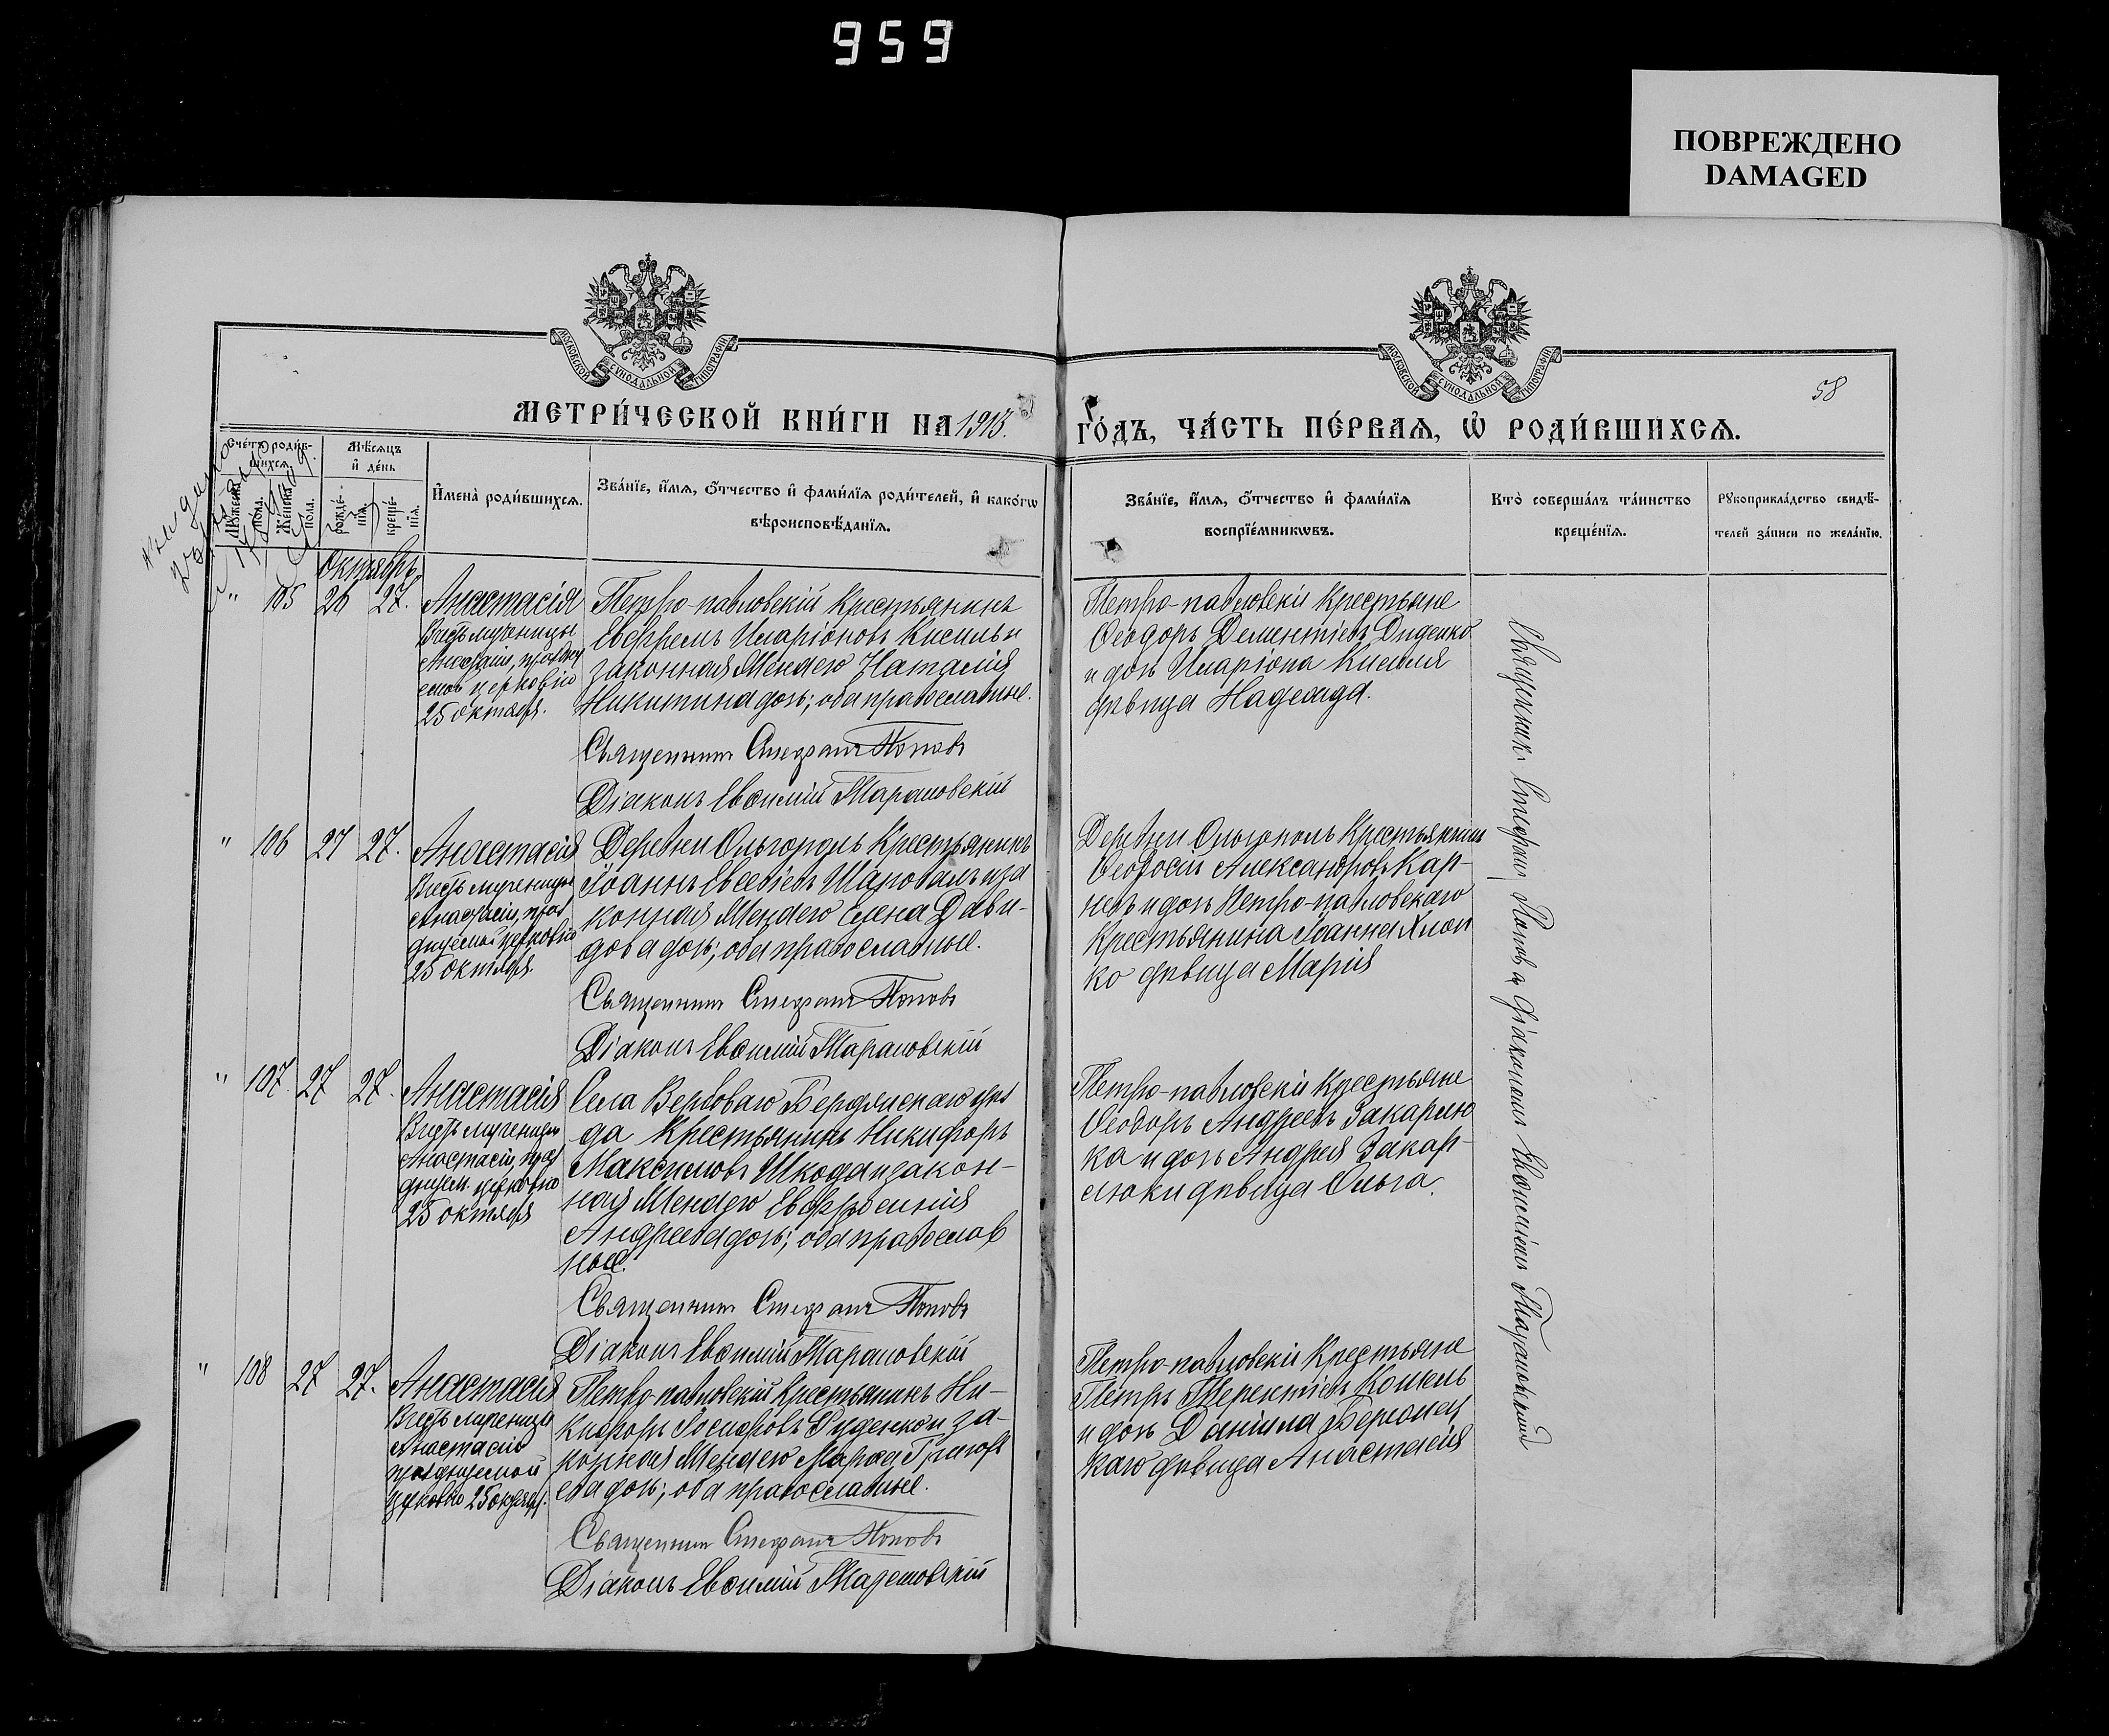 959
ПОВРЕЖДЕНО
DAMAGED
МОСКОВСКОЙ СУНОДАЛЬНОЙ ТИПОГРАФІИ
МОСКОВСКОЙ СУНОДАЛЬНОЙ ТИПОГРАФІИ
58
МЕТРИ́ЧЕСКОЙ КНИ́ГИ НА 1913.
ГО́ДЪ, ЧА́СТЬ ПЕ́РВАЯ, Ѡ҆ РОДИ́ВШИХСЯ.
Сче́тъ роди́в-
шихся.
Мѣ́сяцъ
и҆ де́нь
Мꙋ́жеска
по́ла.
Же́нска
по́ла.
рожде́-
нїя.
креще́-
нїя.
И҆мена̀ роди́вшихся.
Зва́нїе, и҆́мя, ѻ҆́тчество и҆ фами́лїя роди́телей, и҆ како́гѡ
вѣроисповѣ́данїя.
Зва́нїе, и҆́мя, ѻ҆́тчество и҆ фами́лїя
воспрїе́мникѡвъ.
Кто̀ соверша́лъ та́инство
креще́нїя.
Рꙋкоприкла́дство свидѣ́-
телей за́писи по жела́нїю.
Октябрь
" 105 26 27.
Анастасія
Въ честь мученицы
Анастасіи, празднуемой церковію
25 октября.
Петро-павловскій крестьянинъ
Евфремъ Иларіоновъ Кисиль и
законная жена его Наталія
Никитина дочь; оба православные.
Священникъ Стефанъ Поповъ
Діаконъ Евѳимій Тарановскій
Петро-павловскіе крестьяне
Ѳеодоръ Дементіевъ Диденко
и дочь Иларіона Кисиля
дѣвица Надежда.
" 106 27 27.
Анастасія
Въ честь мученицы
Анастасіи, праз
днуемой церковію
25 октября.
Деревни Ольгополь крестьянинъ
Іоаннъ Евсевіевъ Шаповалъ и за
конная жена его Елена Дави-
дова дочь; оба православные.
Священникъ Стефанъ Поповъ
Діаконъ Евѳимій Тарановскій
Деревни Ольгополь крестьянинъ
Ѳеодосій Александровъ Кар-
и дочь Петро-павловскаго
крестьянина Іоанна Хлоп
ко дѣвица Марія
" 107. 27 27.
Анастасія
Въ честь мученицы
Анастасіи, праз
днуем. церковію
25 октября
Села Вербоваго Бердянскаго уѣз
да крестьянинъ Никифоръ
Максимовъ Шкода и закон-
ная жена его Евфросинія
Андреева дочь; оба православ
ные.
Священникъ Стефанъ Поповъ
Діаконъ Евѳимій Тарановскій
Петро-павловскіе крестьяне
Ѳеодоръ Андреевъ Закарлю
ка и дочь Андрея Закар-
люки дѣвица Ольга.
" 108 27 27.
Анастасія
Въ честь мученицы
Анастасіи
празднуемой
церковію 25 октября.
Петро-павловскій крестьянинъ Ни-
кифоръ Іосифовъ Руденко и за-
конная жена его Марѳа Григорь
ева дочь; оба православные.
Священникъ Стефанъ Поповъ
Діаконъ Евѳимій Тарановскій
Петро-павловскіе крестьяне
Петръ Терентіевъ Кошель
и дочь Даніила
каго дѣвица Анастасія
Священникъ Стефанъ Поповъ съ діакономъ Евѳиміемъ Тарановскимъ